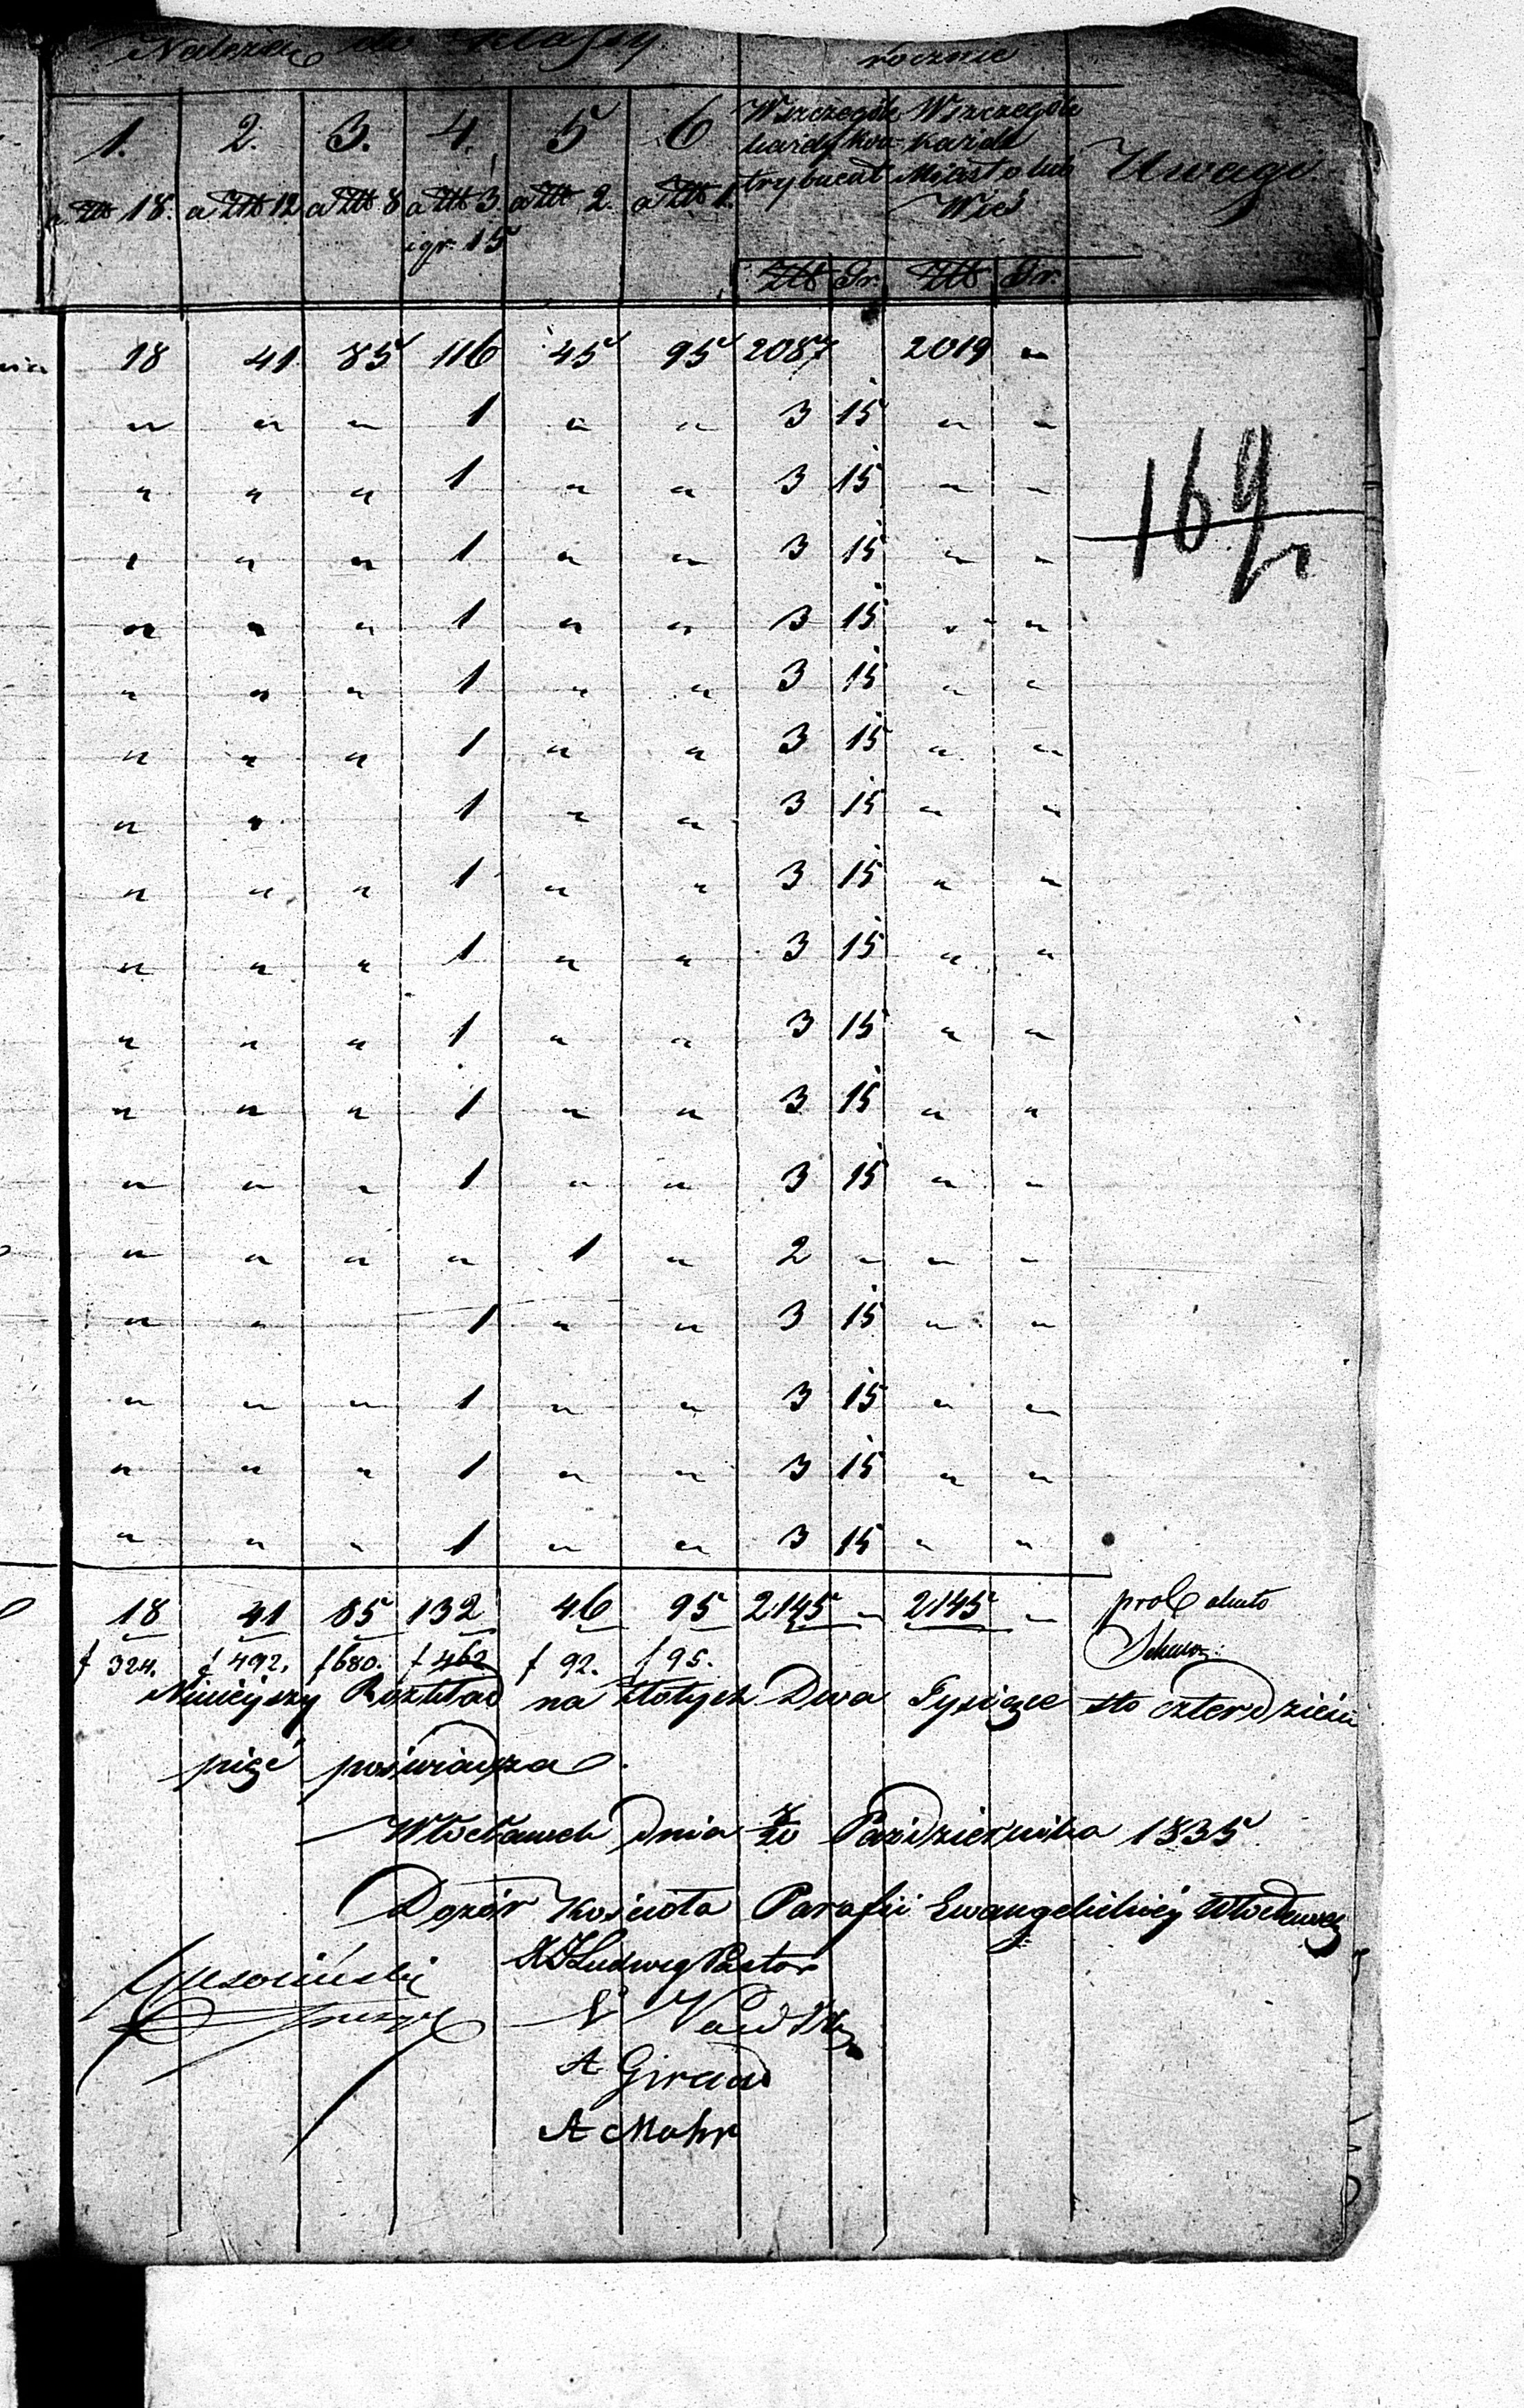 Należą do Klassy rocznie
1. 2. 3. 4. 5 6 Wszczególe Wszczególe Uwagi
każdy kon= każde
a Złt 18. a Złt 12 a Złt 8 a Złt 3 a Złt 2. a Złt 1. trybuent Miasto lub
i gr. 15 Wieś
Złt Gr. Złt Gr.
18 41 85 116 45 95 2087 2019 "
" " " 1 " " 3 15 " "
" " " 1 " " 3 15 " "
169
" " " 1 " " 3 15 " "
" " " 1 " " 3 15 " "
" " " 1 " " 3 15 " "
" " " 1 " " 3 15 " "
" " 1 " " 3 15 " "
" " " 1 " " 3 15 " "
" " " 1 " " 3 15 " "
" " " 1 " " 3 15 " "
" " " 1 " " 3 15 " "
" " " 1 " " 3 15 " "
" " " " 1 " 2 " " "
" " 1 " " 3 15 " "
" " " 1 " " 3 15 " "
" " " 1 " " 3 15 " "
" " " 1 " " 3 15 " "
18 41 85 132 46 95 2145 " 2145 "
f 324. f 492. f 680. f 462 f 92. f 95.
Ninieyszy Rozkład na Złotych Dwa Tysiące sto czterdzieści
pięć poświadcza
Włocławek dnia Października 1835
Dozór Kościoła Parafii Ewangelickiey Włocławey
Ludwig Pastor
A Giraud
A Mohr